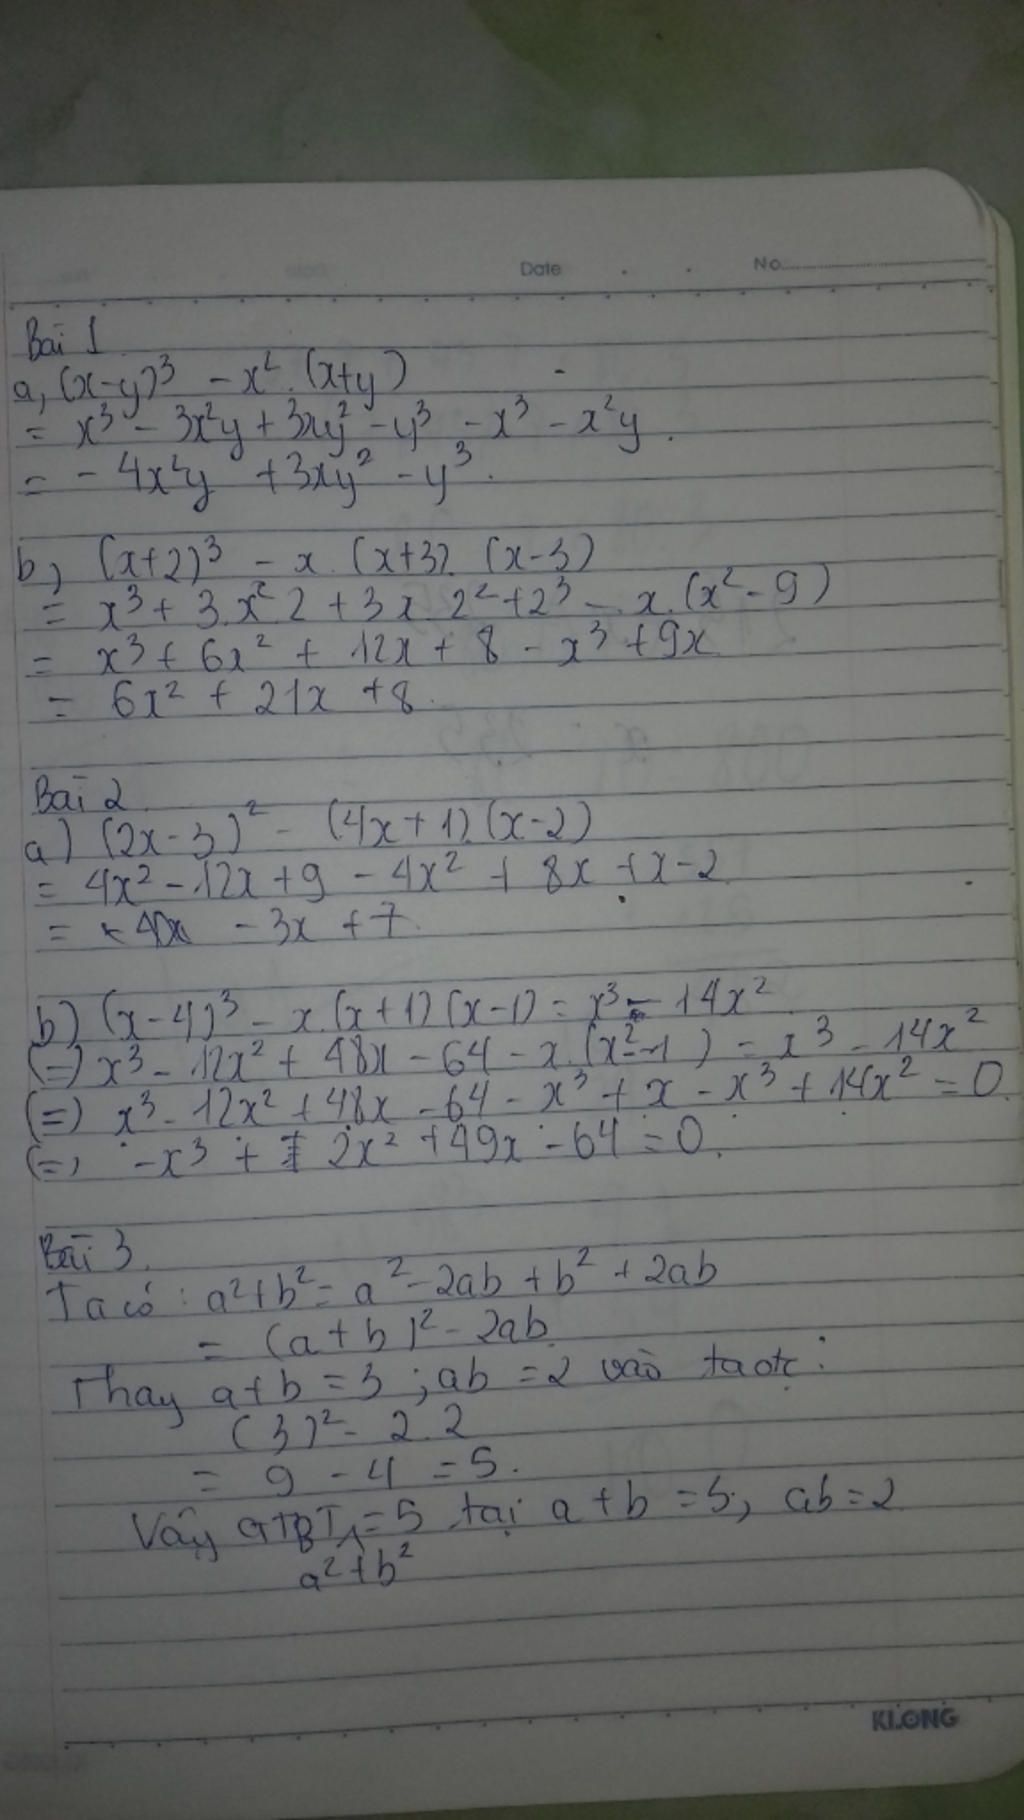 Date No
Bài 1
a, (x-y)³ - x². (x+y)
= x³ - 3x²y + 3xy² - y³ - x³ - x²y.
= - 4x²y + 3xy² - y³.
b, (x+2)³ - x. (x+3). (x-3)
= x³ + 3.x².2 + 3x.2² + 2³ - x.(x² - 9)
= x³ + 6x² + 12x + 8 - x³ + 9x
= 6x² + 21x + 8.
Bài 2
a) (2x-3)² - (4x+1).(x-2)
= 4x² - 12x + 9 - 4x² + 8x + x - 2
= - 3x + 7.
b) (x-4)³ - x.(x+1)(x-1) = x³ - 14x²
(=) x³ - 12x² + 48x - 64 - x.(x²-1) = x³ - 14x²
(=) x³ - 12x² + 48x - 64 - x³ + x - x³ + 14x² = 0.
(=) -x³ + 2x² + 49x - 64 = 0.
Bài 3.
Ta có : a²+b² = a² - 2ab + b² + 2ab
= (a+b)² - 2ab
Thay a+b = 3 ; ab = 2 vào ta đc :
(3)² - 2.2
= 9 - 4 = 5.
Vậy GTBT = 5 tại a+b = 5, ab = 2
a² + b²
KLONG